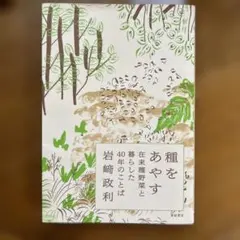 種を
あやす
在来種野菜と
暮らした
40年のことば
岩﨑政利